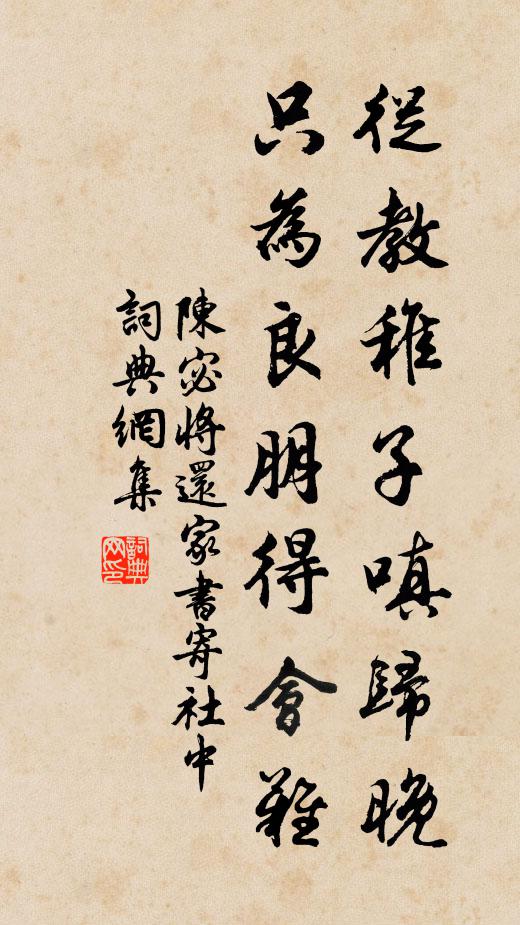 從教稚子嗔歸晚
只為良朋得會難
陳宓將還家書寄社中
詞典網集
詞典網印